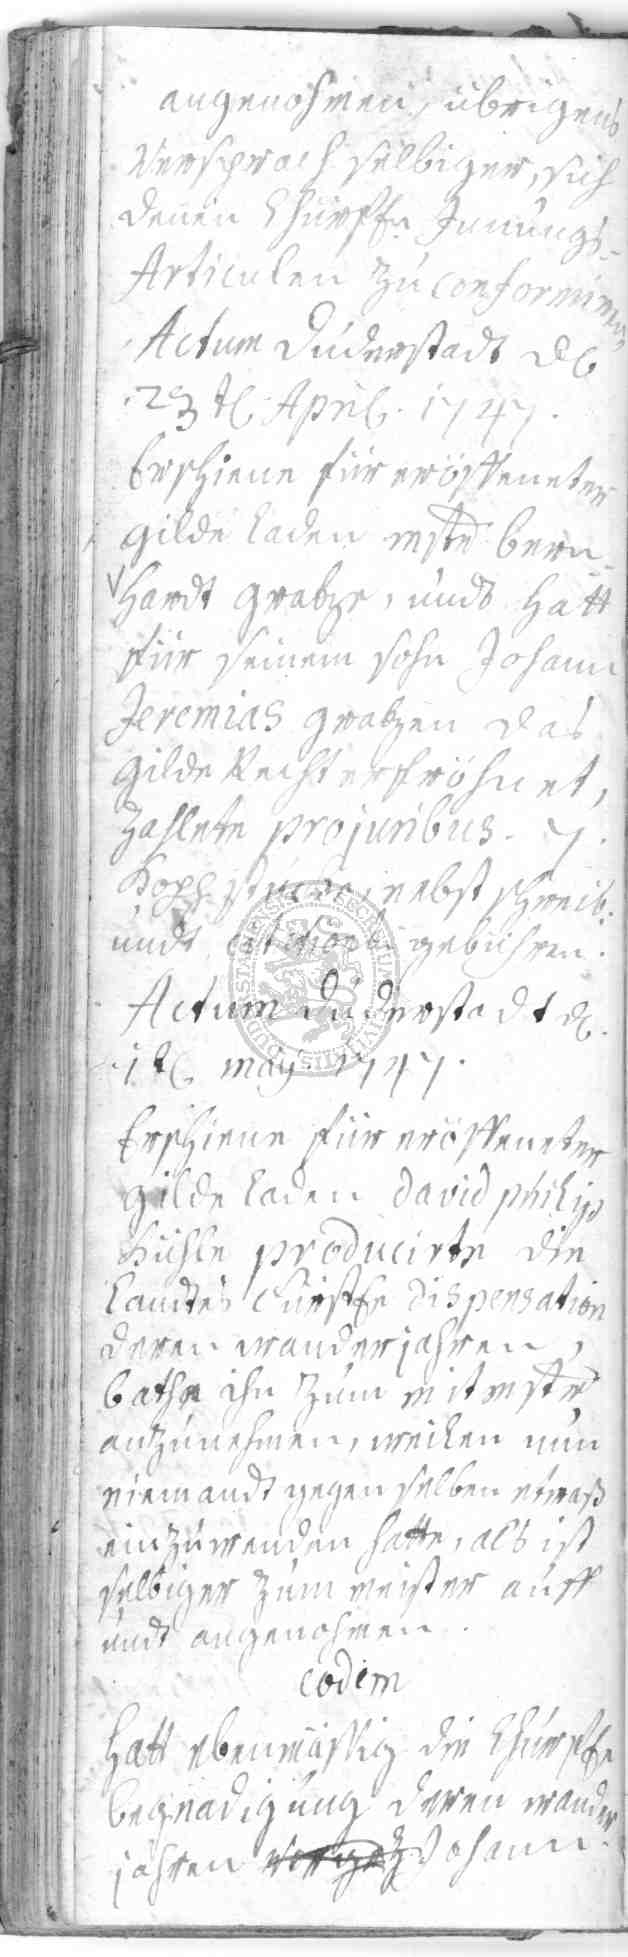 angenohmen, übrigens
versprach selbiger, sich
denen Churfl. Innungs-
Articulen zu conformiren
Actum Duderstadt d.
23 t. April. 1747.
Erschiene für eröffneter
gilde Laden mstr. bern-
hardt grabze, undt hatt
für seinem sohn Johann
Jeremias grabzen das
gilde Recht erfröhnet,
zahlete pro juribus. 7.
Kopfstücke, nebst schreib.
undt gebühren.
Actum Duderstadt d.
1 t. may. 1747.
Erschiene für eröffneter
gilde Laden david philip
Kühle producirte die
Landes Fürstl. Dispensation
deren wanderjahren,
bathe ihn zum mitmstr.
anzunehmen, weilen nun
niemandt gegen selben etwaß
einzuwenden hatte, als ist
selbiger zum meister auff
undt angenohmen.
eodem
hatt ebenmässig die Churfl.
begnadigung deren wander
jahren Johann
SECRETUM CIVITATIS DUDERSTADENSIS